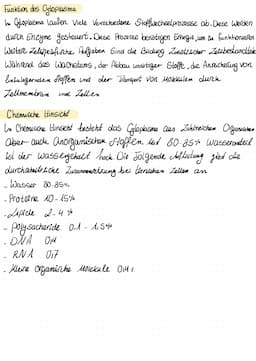 Funktion des Cytoplasma
Im Cytoplasma laufen viele Verschiedene Stoffwechselprozesse ab. Diese werden
durch Enzyme gesteuert. Diese Prozesse benötigen Energie, um zu funktionieren
Weitere Zellspezifische Aufgaben sind die Bildung Zusätzlicher Zellbestandteile
Während des Wachstums, der Abbau unnötiger Stoffe, die Anreicherung von
Stoffen und der Transport von Molekülen durch
Zellmembran und Zellen.
Chemische Hinsicht
In Chemische Hinsicht besteht das Cytoplasma aus Zahlreichen Organischen
Aber auch Anorganischen Stoffen. Mit 80-85% Wasseranteil
ist der Wassergehalt hoch. Die Folgende gibt die
durchschnittliche Zusammensetzung bei tierischen Zellen an
- Wasser 80-85%
- Proteine 10-15%
- Lipide 2-4%
- Polysacharide 0.1-1.5%
- DNA 0,4
- RNA 0,7
- Kleine Organische Moleküle 0,4